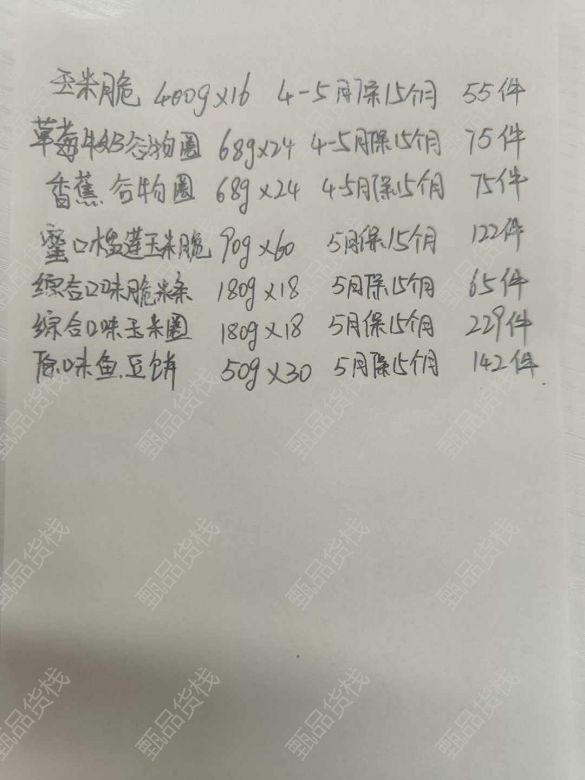 玉米脆 400g×16 4-5月保15个月 55件
草莓牛奶谷物圈 68g×24 4-5月保15个月 75件
香蕉谷物圈 68g×24 4-5月保15个月 75件
蜜口榴莲玉米脆 90g×60 5月保15个月 122件
综合口味脆米条 180g×18 5月保15个月 65件
综合口味玉米圈 180g×18 5月保15个月 229件
原味鱼豆饼 50g×30 5月保15个月 142件
甄品货栈